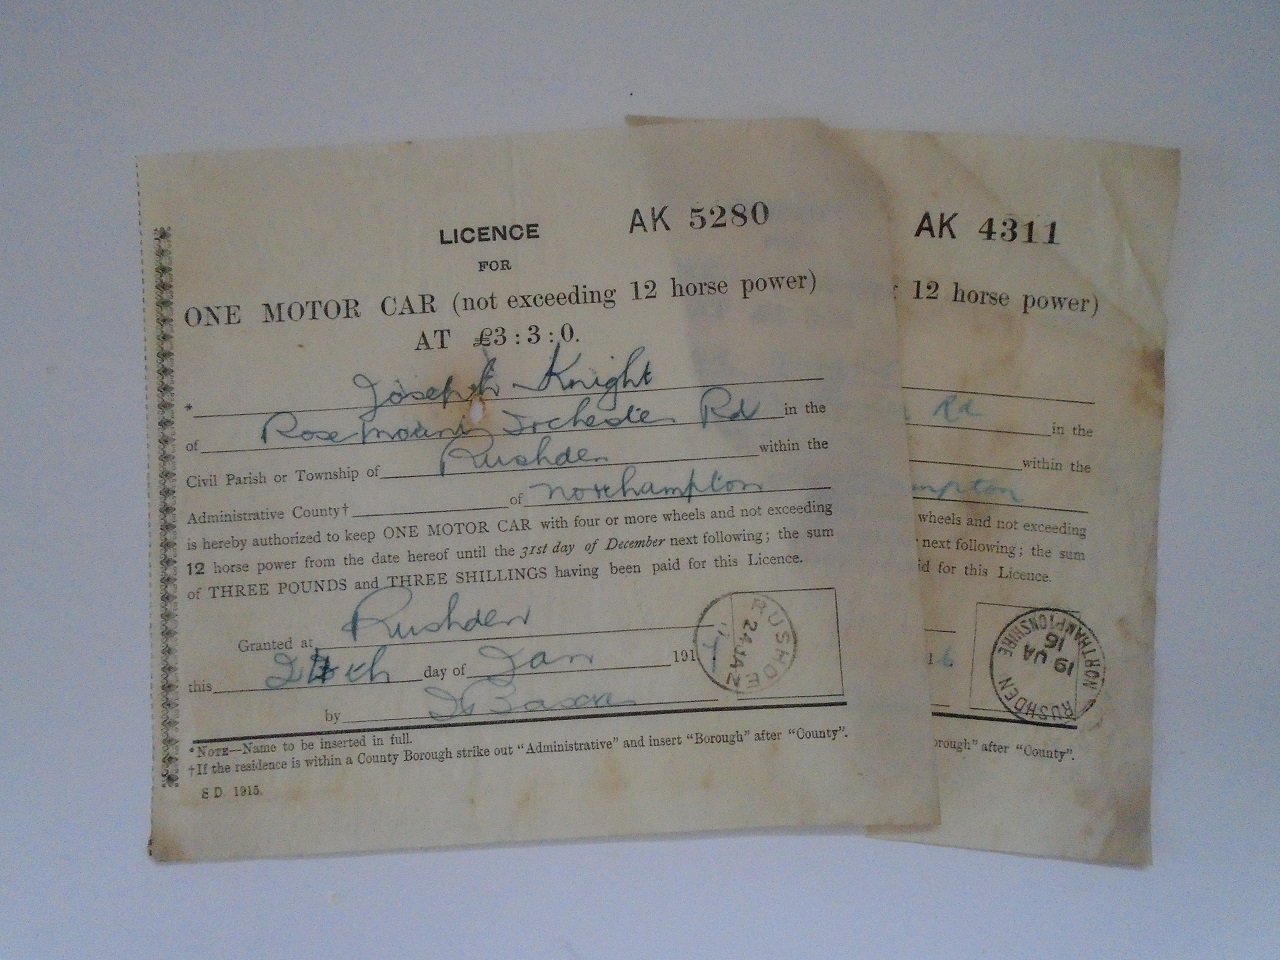 LICENCE AK 5280
FOR
ONE MOTOR CAR (not exceeding 12 horse power)
AT £3 : 3 : 0.
* Joseph Knight
of Rosemount Irchester Rd in the
Civil Parish or Township of Rushden within the
Administrative County† of Northampton
is hereby authorized to keep ONE MOTOR CAR with four or more wheels and not exceeding
12 horse power from the date hereof until the 31st day of December next following; the sum
of THREE POUNDS and THREE SHILLINGS having been paid for this Licence.
Granted at Rushden
this 24th day of Jan 1917
by
RUSHDEN
24 JAN
* NOTE—Name to be inserted in full.
†If the residence is within a County Borough strike out "Administrative" and insert "Borough" after "County".
S D. 1915.
AK 4311
12 horse power)
Rd in the
within the
mpton
wheels and not exceeding
next following; the sum
id for this Licence.
1 6
RUSHDEN
19 JA
16
NORTHAMPTONSHIRE
orough" after "County".